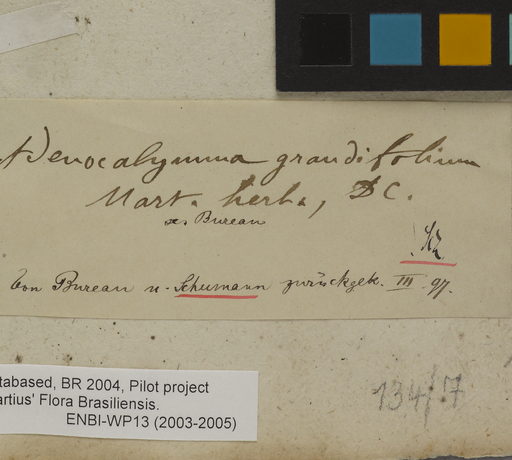 Adenocalymma grandifolium
Mart. herb., DC.
Bureau
Von Bureau u. Schumann zurückgek. III. 97.
tabased, BR 2004, Pilot project
artius' Flora Brasiliensis.
ENBI-WP13 (2003-2005)
134/7